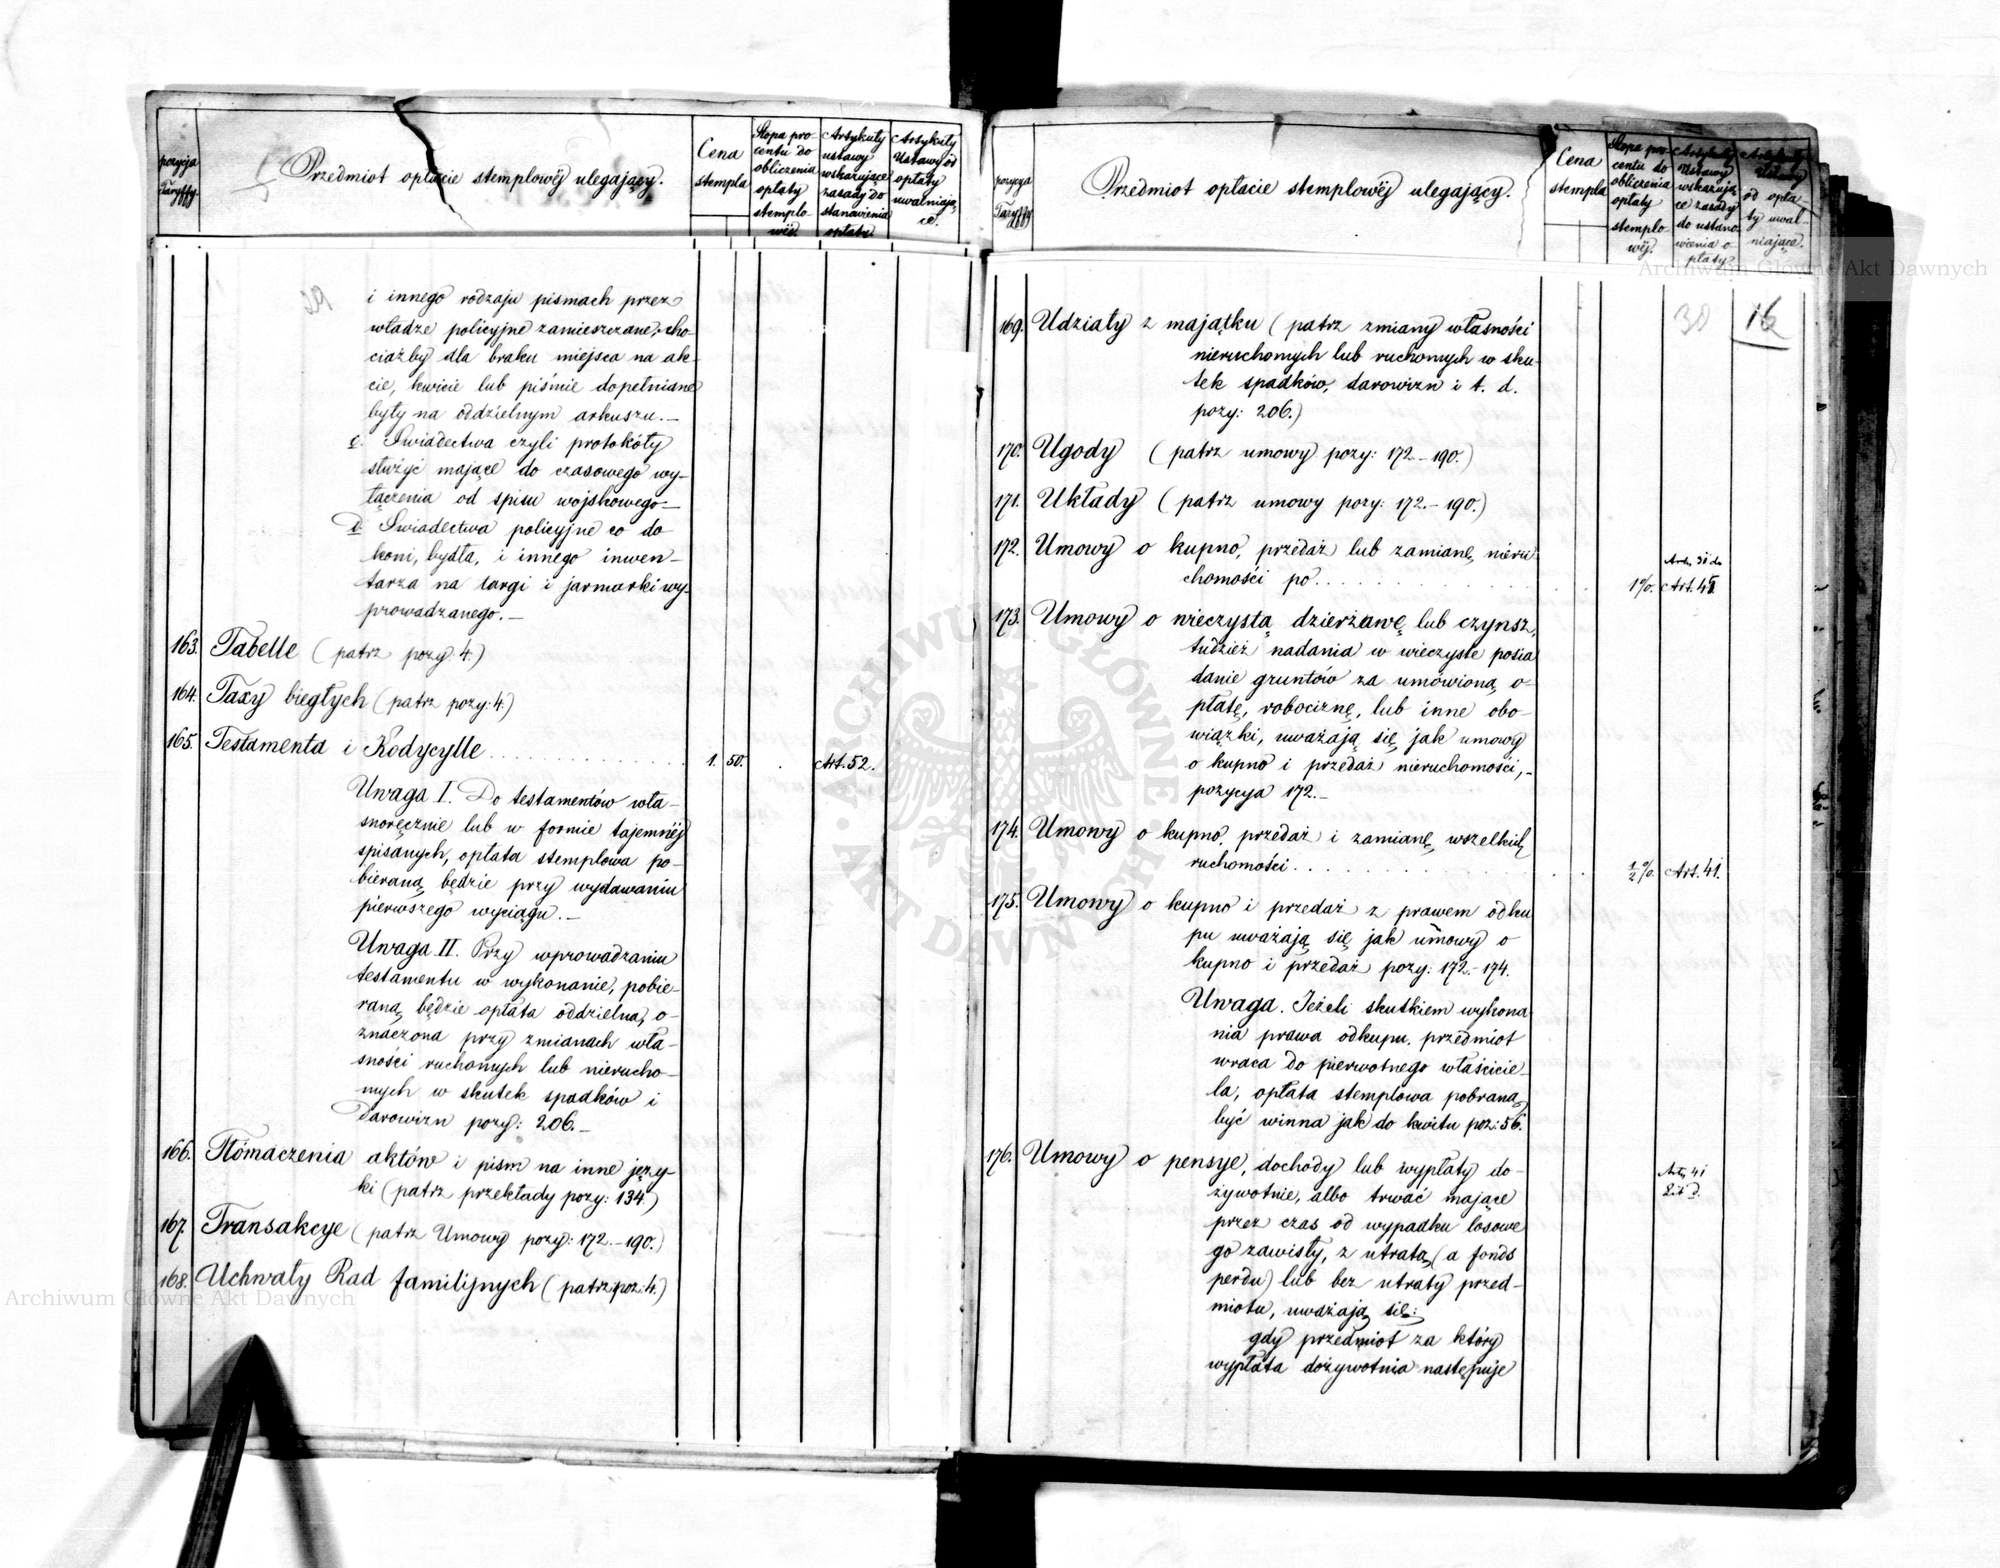 pozycja
Taryffy.
Przedmiot opłacie stemplowéj ulegający.
Cena
stempla
Stopa pro-
centu do
obliczenia
opłaty
stemplo-
wéj.
Artykuły
ustawy
wskazujące
zasady do
stanowienia
opłaty.
Artykuły
Ustawy od
opłaty
uwalniają-
ce.
29
i innego rodzaju pismach przez
władze policyjne zamieszczane, cho-
ciażby dla braku miejsca na ak-
cie, kwicie lub piśmie dopełniane
były na oddzielnym arkuszu.—
c. Świadectwa czyli protokóły
służyć mające do czasowego wy-
łączenia od spisu wojskowego—
d. Świadectwa policyjne co do
koni, bydła, i innego inwen-
tarza na targi i jarmarki wy-
prowadzanego.—
163. Tabelle (patrz pozy: 4.)
164. Taxy biegłych (patrz pozy: 4.)
165. Testamenta i Kodycylle . . . . . . . . . . . 1. 50. . Art. 52.
Uwaga I. Do testamentów wła-
snoręcznie lub w formie tajemnéj
spisanych, opłata stemplowa po-
bieraną będzie przy wydawaniu
pierwszego wyciągu.—
Uwaga II. Przy wprowadzaniu
testamentu w wykonanie, pobie-
raną będzie opłata oddzielna, o-
znaczona przy zmianach wła-
sności ruchomych lub nierucho-
mych w skutek spadków i
darowizn pozy: 206.—
166. Tłómaczenia aktów i pism na inne języ-
ki (patrz przekłady pozy: 134)
167. Transakcye (patrz Umowy pozy: 172.—190.)
168. Uchwały Rad familijnych (patrz poz: 4.)
pozycya
Taryffy
Przedmiot opłacie stemplowéj ulegający.
Cena
stempla
Stopa pro-
centu do
obliczenia
opłaty
stemplo-
wéj.
Artykuły
Ustawy
wskazują-
ce zasady
do ustano-
wienia o-
płaty.
Artykuły
Ustawy
od opła-
ty uwal-
niające.
30
16
169. Udziały z majątku (patrz zmiany własności
nieruchomych lub ruchomych w sku-
tek spadków, darowizn i t. d.
pozy: 206.)
170. Ugody (patrz umowy pozy: 172.—190.)
171. Układy (patrz umowy pozy: 172.—190.)
172. Umowy o kupno, przedaż lub zamianę nieru
chomości po . . . . . . . . . . . . 1%. Art. 45
173. Umowy o wieczystą dzierżawę lub czynsz,
tudzież nadania w wieczyste posia
danie gruntów za umówioną o-
płatę, robociznę, lub inne obo-
wiązki, uważają się jak umowy
o kupno i przedaż nieruchomości,-
pozycya 172.—
174. Umowy o kupno, przedaż i zamianę wszelkich
ruchomości . . . . . . . . . . . . ½%. Art. 41.
175. Umowy o kupno i przedaż z prawem odku
pu uważają się jak umowy o
kupno i przedaż pozy: 172.—174.
Uwaga. Jeżeli skutkiem wykona
nia prawa odkupu przedmiot
wraca do pierwotnego właścicie-
la, opłata stemplowa pobraną
być winna jak do kwitu poz: 56.
176. Umowy o pensye, dochody lub wypłaty do-
żywotnie, albo trwać mające
przez czas od wypadku losowe
go zawisły, z utratą (a fonds
perdu) lub bez utraty przed-
miotu, uważają się:
gdy przedmiot za który
wypłata dożywotnia następuje
Art. 41
Lit D.
ARCHIWUM GŁÓWNE · AKT DAWNYCH ·
Archiwum Główne Akt Dawnych
Archiwum Główne Akt Dawnych